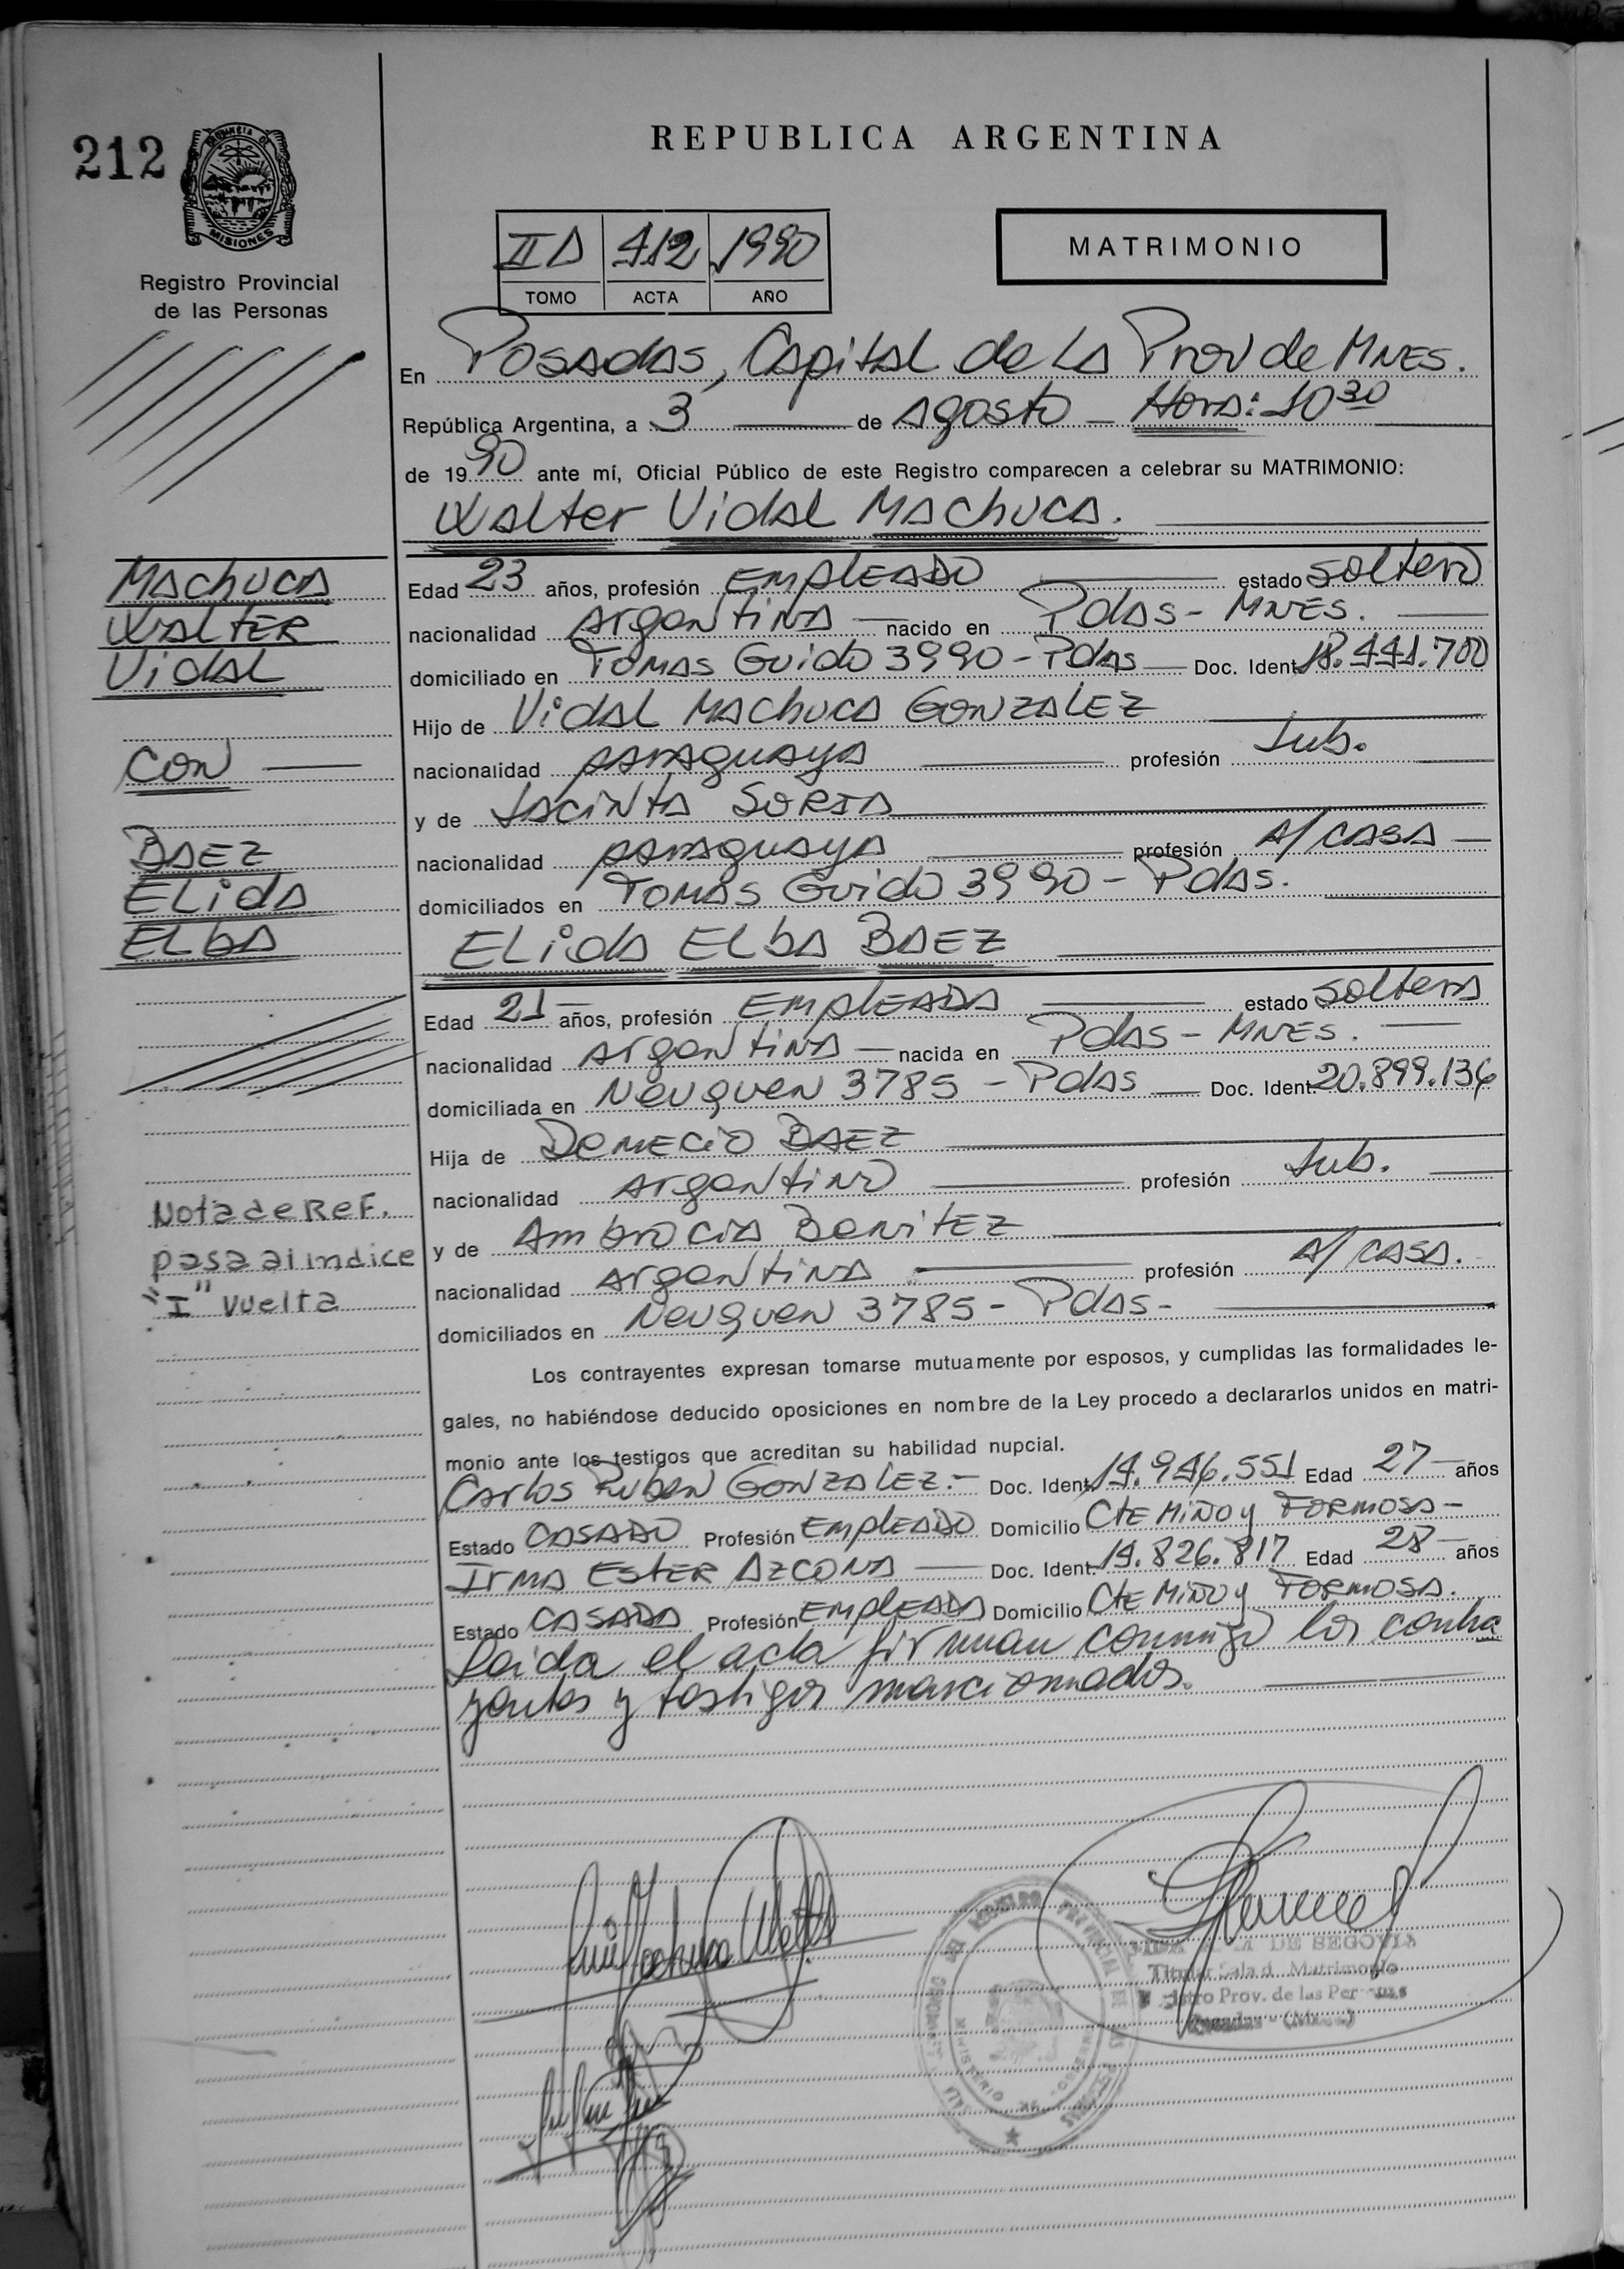 212
PROVINCIA DE
MISIONES
Registro Provincial
de las Personas
REPUBLICA ARGENTINA
II A 412 1990
TOMO ACTA AÑO
MATRIMONIO
En Posadas, Capital de la Prov de Mnes.
República Argentina, a 3 de Agosto Hora: 10 30
de 1990 ante mí, Oficial Público de este Registro comparecen a celebrar su MATRIMONIO:
Walter Vidal Machuca.
Edad 23 años, profesión Empleado estado soltero
nacionalidad Argentina nacido en Pdas - Mnes.
domiciliado en Tomas Guido 3990 - Pdas Doc. Ident. 18.441.700
Hijo de Vidal Machuca Gonzalez
nacionalidad paraguaya profesión Jub.
y de Jacinta Soria
nacionalidad paraguaya profesión A/ casa
domiciliados en Tomas Guido 3990 - Pdas.
Elida Elba Baez
Edad 21 años, profesión Empleada estado soltera
nacionalidad Argentina nacida en Pdas - Mnes.
domiciliada en Neuquen 3785 - Pdas Doc. Ident. 20.899.136
Hija de Demecio Baez
nacionalidad Argentino profesión Jub.
y de Ambrocia Benitez
nacionalidad Argentina profesión A/ casa.
domiciliados en Neuquen 3785 - Pdas -
Machuca
Walter
Vidal
con
Baez
Elida
Elba
Nota de Ref.
pasa al indice
"I" vuelta
Los contrayentes expresan tomarse mutuamente por esposos, y cumplidas las formalidades le-
gales, no habiéndose deducido oposiciones en nombre de la Ley procedo a declararlos unidos en matri-
monio ante los testigos que acreditan su habilidad nupcial.
Carlos Ruben Gonzalez.- Doc. Ident. 14.946.551 Edad 27 años
Estado casado Profesión Empleado Domicilio Cte Miño y Formosa -
Irma Ester Azcona Doc. Ident. 14.826.817 Edad 28 años
Estado casada Profesión Empleada Domicilio Cte Miño y Formosa.
Leida el acta firman conmigo los contra
yentes y testigos mencionados.
DE SEGOVIA
Titular Sala d Matrimonio
Prov. de las Per
Posadas - (Mnes)